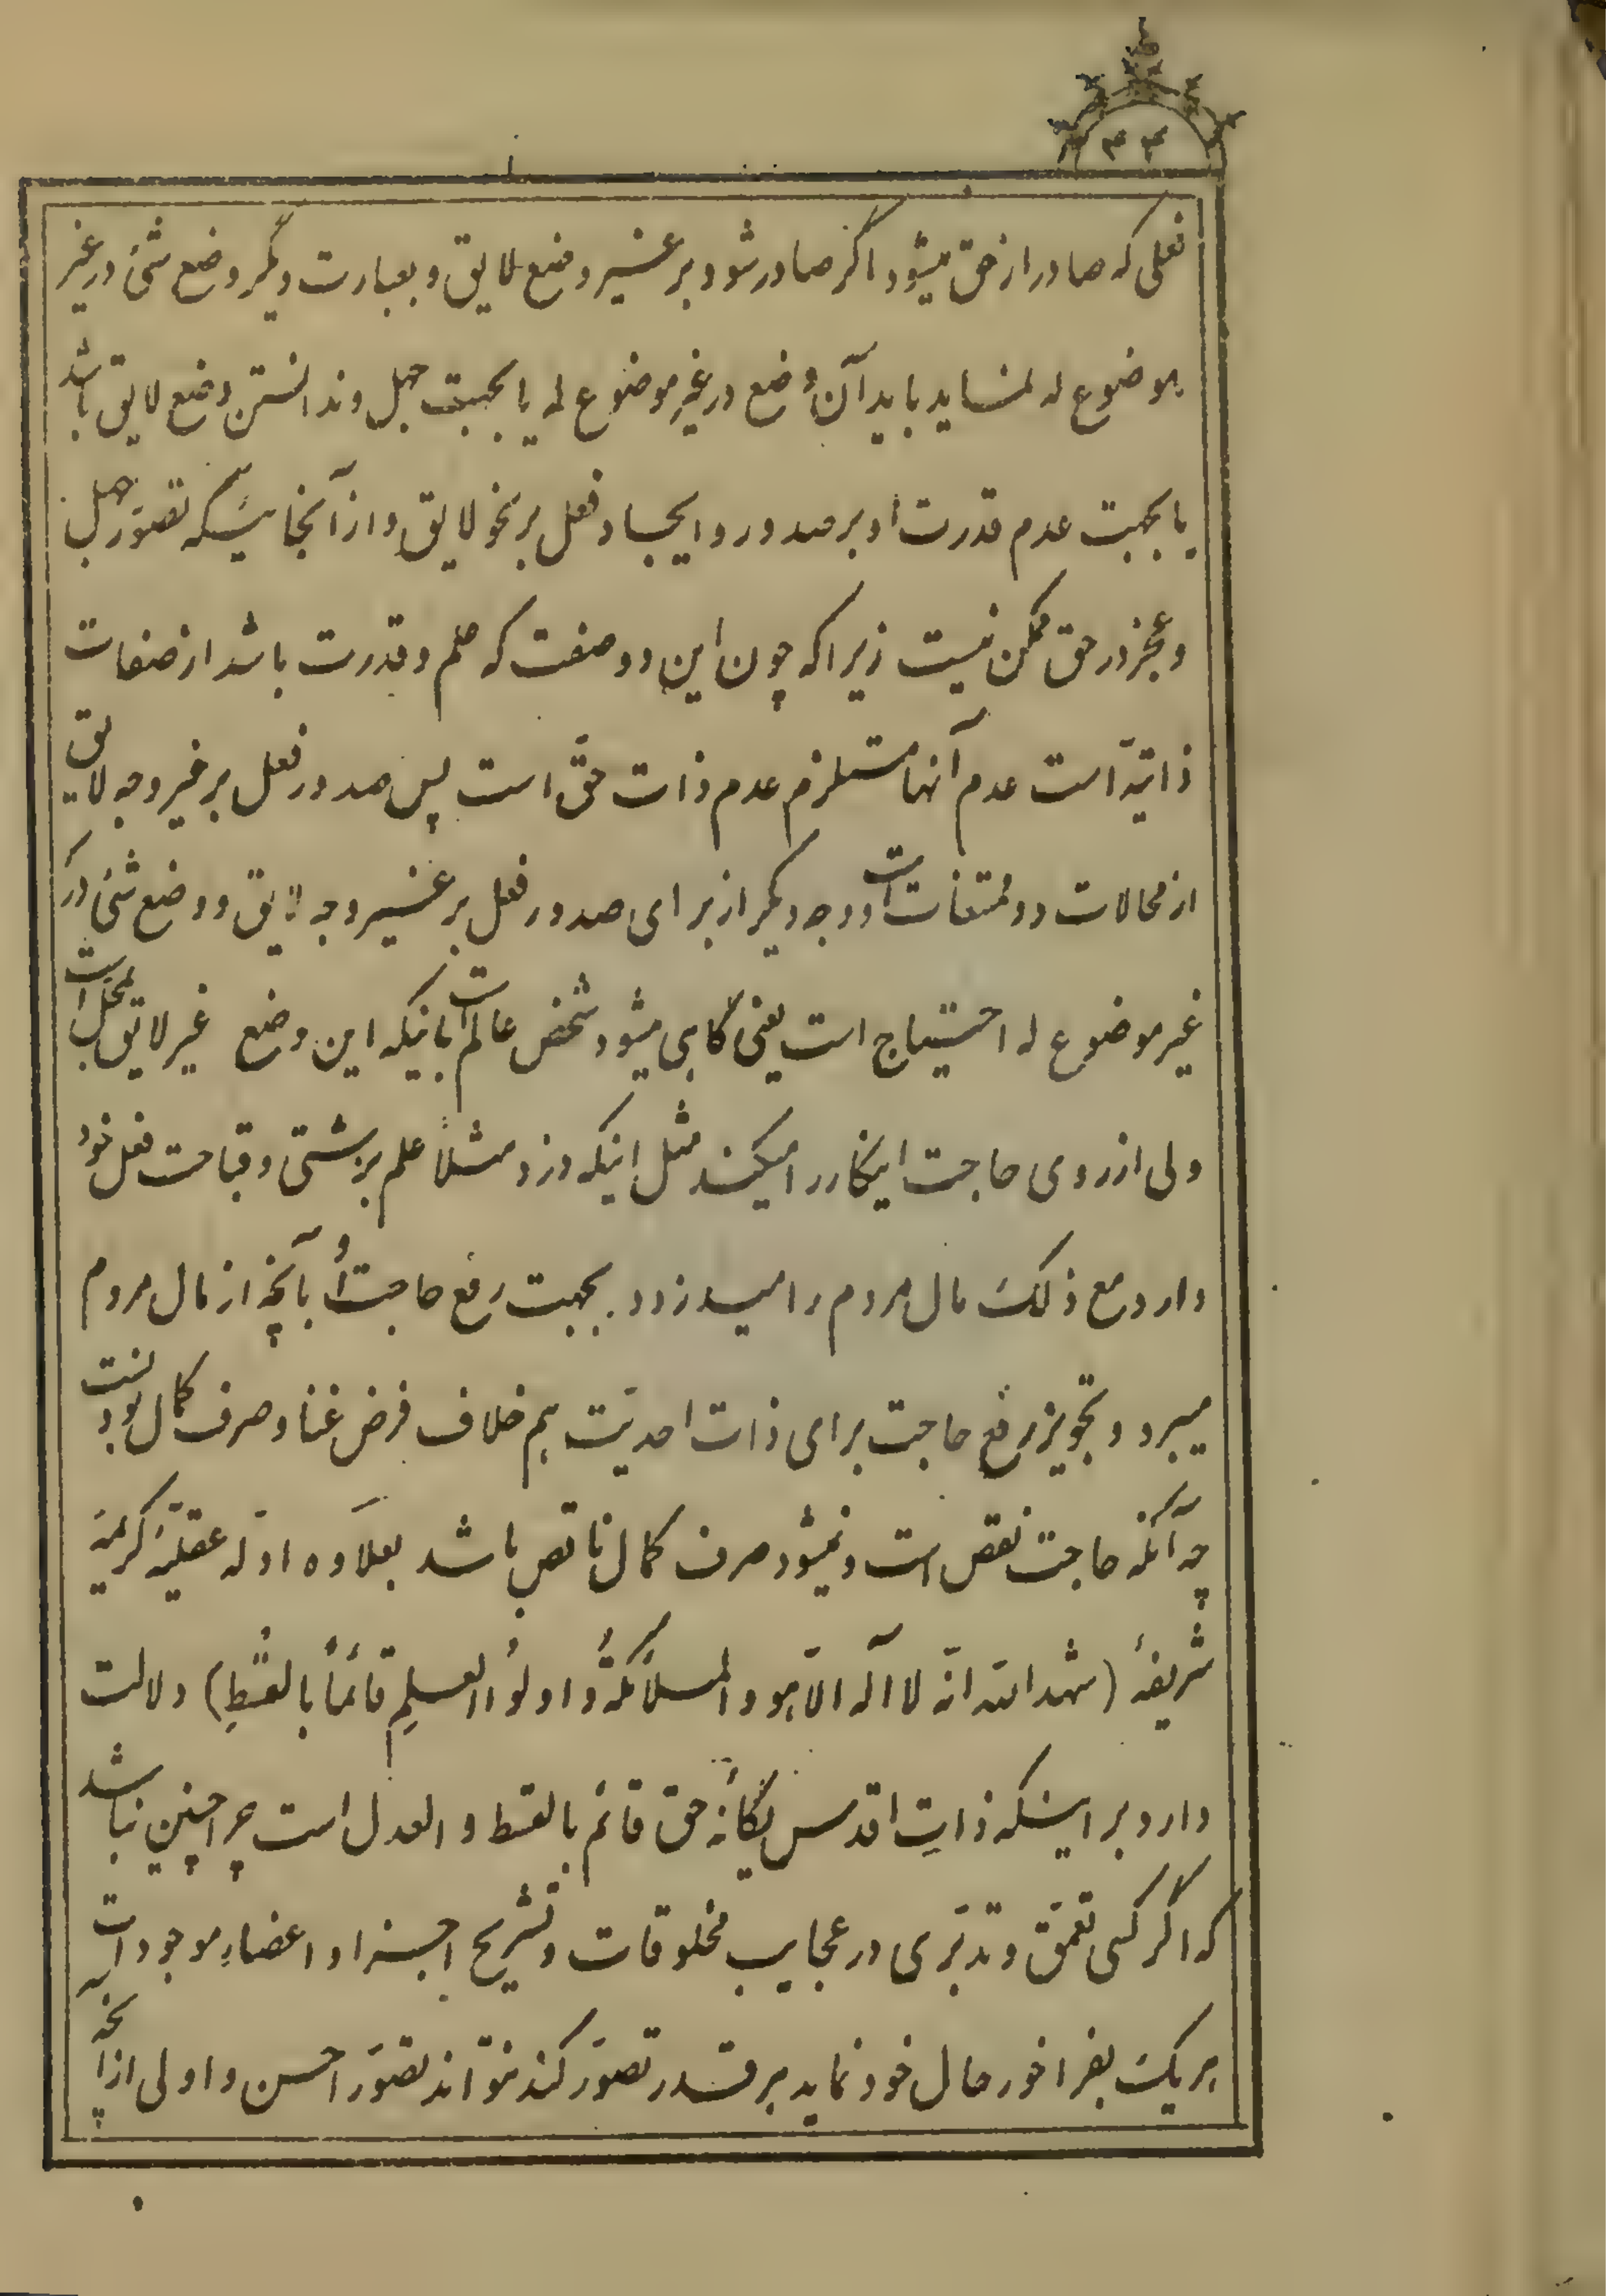 ۴۴
فعلی که صادر از حق میشود اگر صادر شود بر غیر وضع لایق و بعبارت دیگر وضع شیٔ در غیر
موضوع له نماید باید آن وضع در غیر موضوع له یا بجهت جهل و ندانستن وضع لایق باشد
یا بجهت عدم قدرت او بر صدور و ایجاد فعل بر نحو لایق و از آنجائیکه تصوّر جهل
و عجز در حق ممکن نیست زیرا که چون این دو صفت که علم و قدرت باشد از صفات
ذاتیّه است عدم آنها مستلزم عدم ذات حقّ است پس صدور فعل بر غیر وجه لایق
از محالات و ممتنعات است و وجه دیگر از برای صدور فعل بر غیر وجه لایق و وضع شیٔ در
غیر موضوع له احتیاج است یعنی گاهی میشود شخص عالم است باینکه این وضع غیر لایق بمحلّ است
ولی از روی حاجت اینکار را میکند مثل اینکه دزد مثلاً علم بزشتی و قباحت فعل خود
دارد مع ذلک مال مردم را میدزدد بجهت رفع حاجت أو بآنچه از مال مردم
میبرد و تجویز رفع حاجت برای ذات احدیّت هم خلاف فرض غنا و صرف کمال بودنست
چه آنکه حاجت نقص است و نمیشود صرف کمال ناقص باشد بعلاوه ادلّه عقلیّه کریمهٔ
شریفهٔ (شهد الله انّه لا آله الاّ هو و الملآئکةُ و اولوُا العلمِ قآئماً بالقسْطِ) دلالت
دارد بر اینکه ذاتِ اقدس یگانه حق قائم بالقسط و العدل است چرا چنین نباشد
که اگر کسی تعمّق و تدبّری در عجایب مخلوقات و تشریح اجزا و اعضاءِ موجودات
هر یک بفراخور حال خود نماید هر قدر تصوّر کند نتواند تصوّر احسن و اولی از آنچه